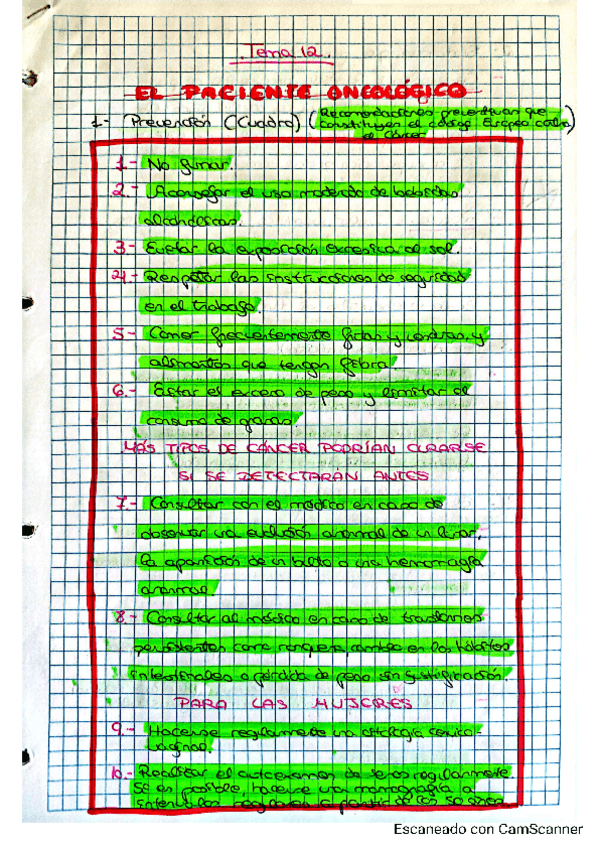 Tema 12.
EL PACIENTE ONCOLÓGICO
1- Prevención (Cuadro) (Recomendaciones preventivas que
constituyen el código Europeo contra
el Cáncer)
1- No fumar.
2.- Aconsejar el uso moderado de bebidas
alcohólicas.
3- Evitar la exposición excesiva al sol.
4- Respetar las instrucciones de seguridad
en el trabajo.
5- Comer frecuentemente frutas y verduras, y
alimentos que tengan fibra.
6.- Evitar el exceso de peso y limitar el
consumo de grasas.
MÁS TIPOS DE CÁNCER PODRÍAN CURARSE
SI SE DETECTARÁN ANTES
7- Consultar con el médico en caso de
observar una evolución anormal de un lunar,
la aparición de un bulto o una hemorragia
anormal.
8- Consultar al médico en caso de trastornos
persistentes como ronquera, cambio en los hábitos
intestinales o pérdida de peso sin justificación.
PARA LAS MUJERES
9.- Hacerse regularmente una citología cérvico-
vaginal.
10.- Realizar el autoexamen de senos regularmente.
Si es posible, hacerse una mamografía a
intervalos regulares a partir de los 50 años
Escaneado con CamScanner